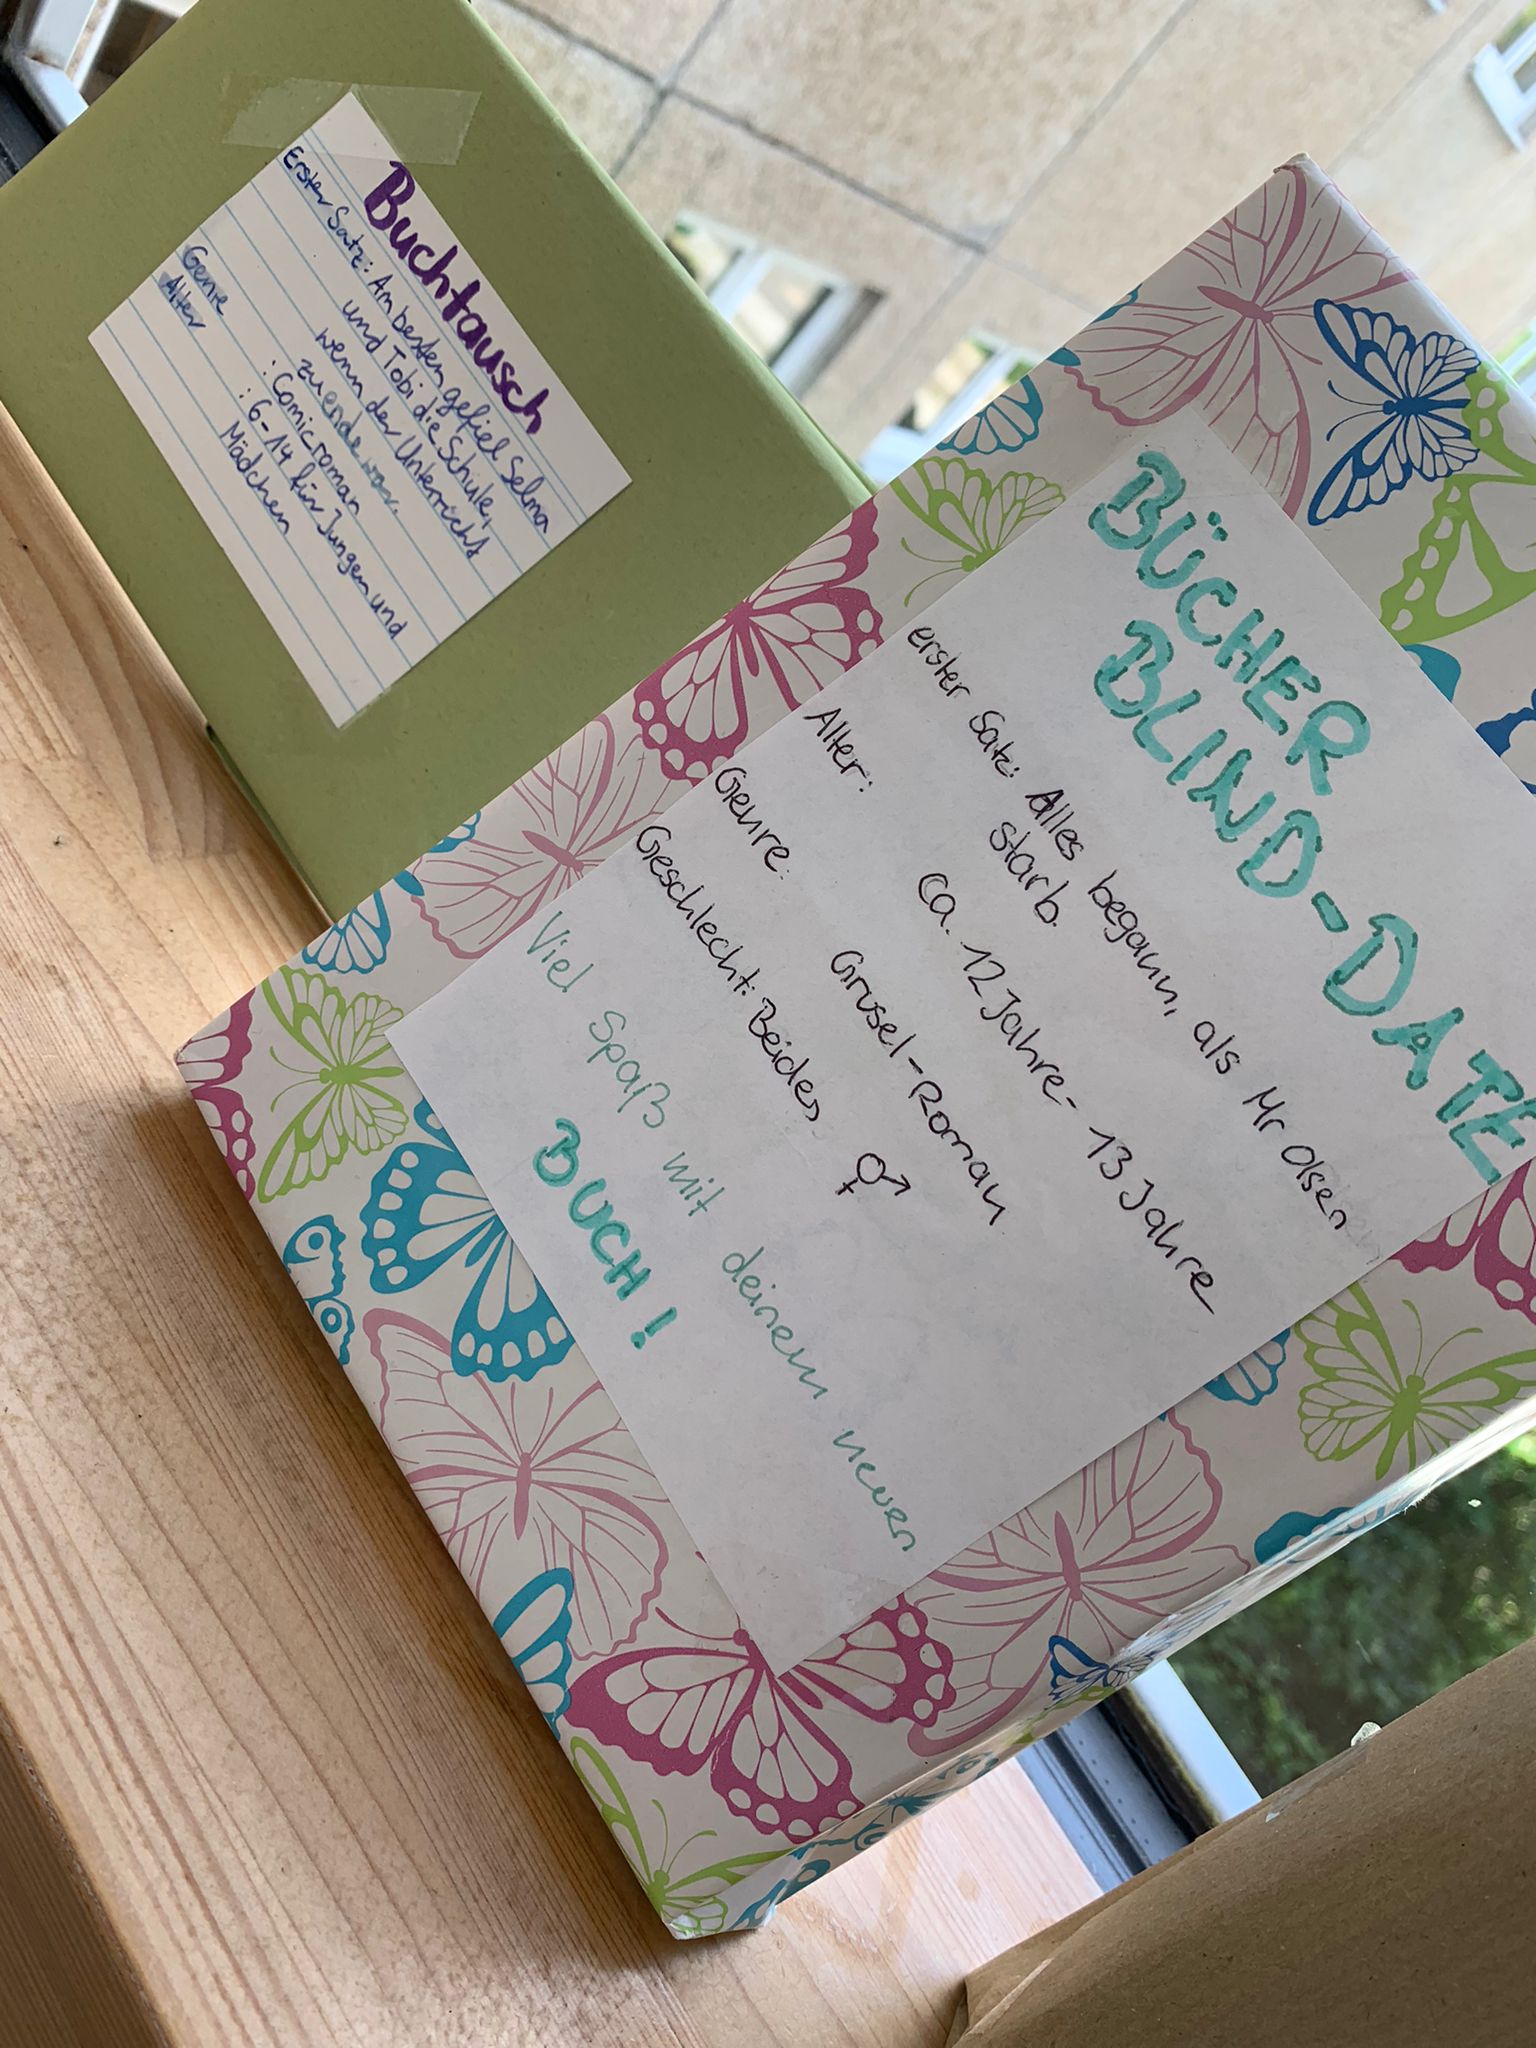 Buchtausch
Erster Satz: Am besten gefiel Selma
und Tobi die Schule,
wenn der Unterricht
zuende war.
Genre : Comicroman
Alter : 6-14 für Jungen und
Mädchen
BÜCHER
BLIND-DATE
erster Satz: Alles begann, als Mr Olsen
starb.
Alter: ca. 12 Jahre - 13 Jahre
Genre: Grusel-Roman
Geschlecht: Beides ⚥
Viel Spaß mit deinem neuen
BUCH!